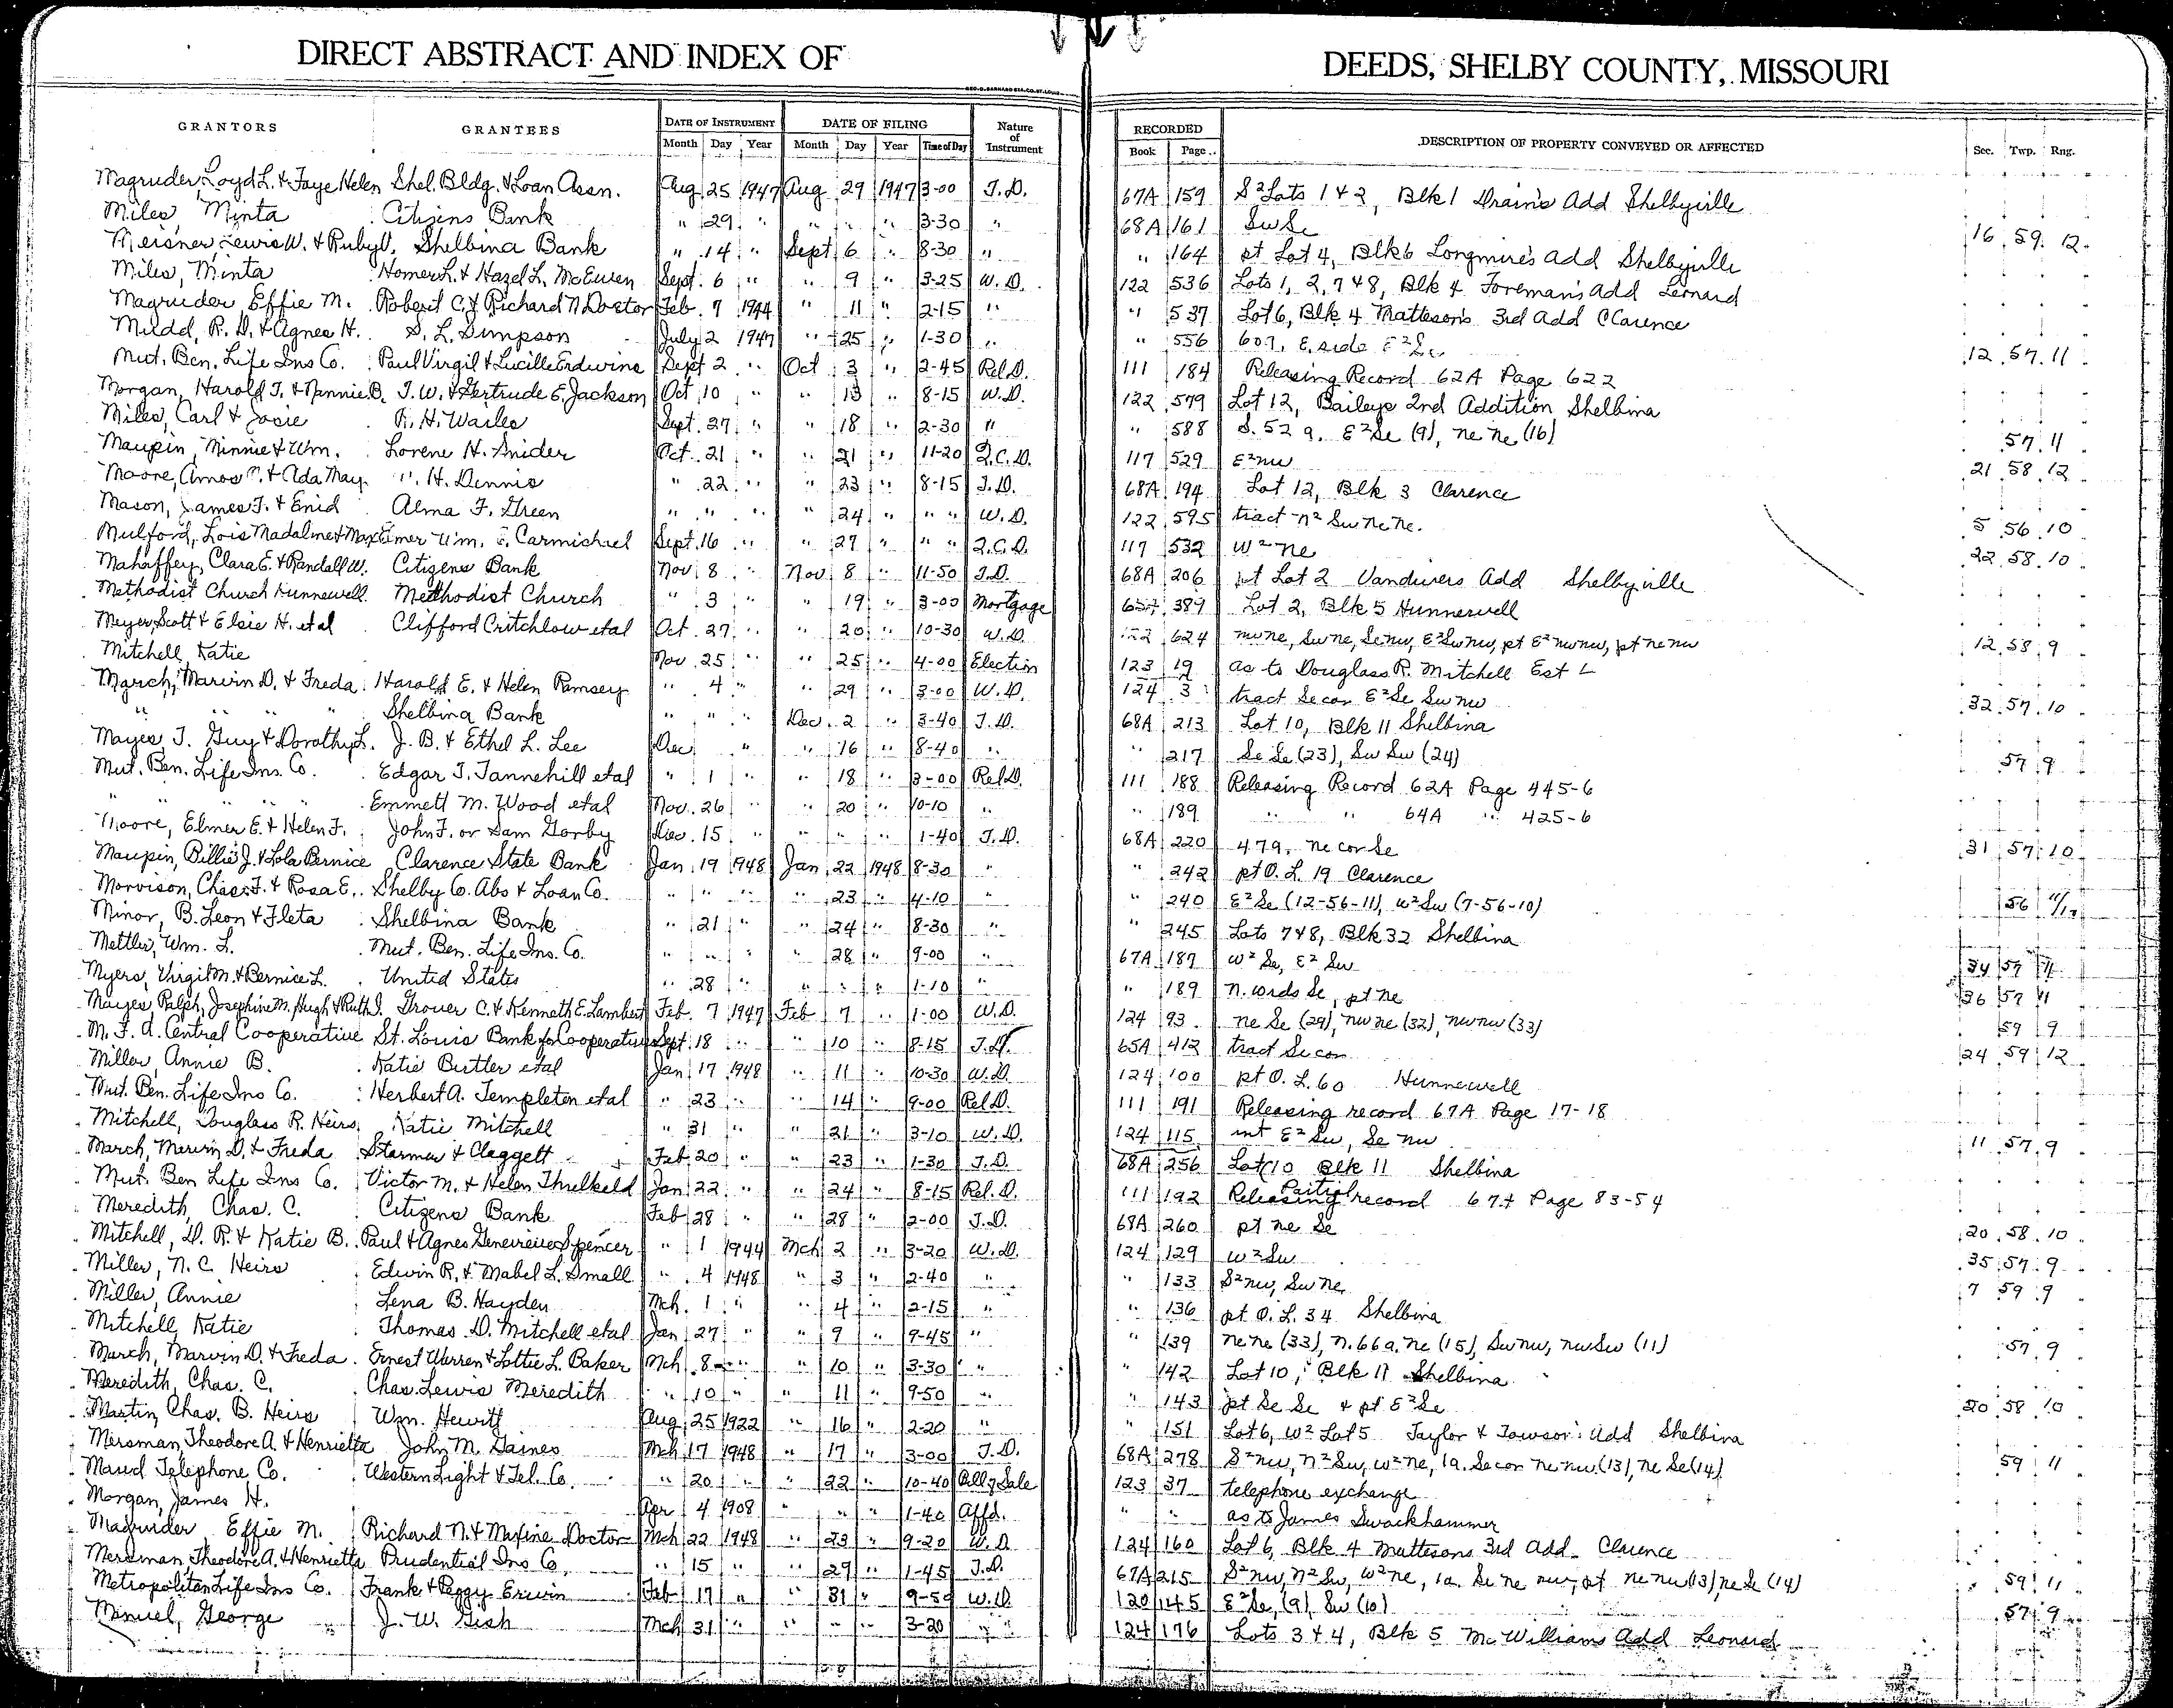 DIRECT ABSTRACT AND INDEX OF DEEDS, SHELBY COUNTY, MISSOURI
GRANTORS GRANTEES DATE OF INSTRUMENT DATE OF FILING Nature of Instrument RECORDED DESCRIPTION OF PROPERTY CONVEYED OR AFFECTED Sec. Twp. Rng.
Month Day Year Month Day Year Time of Day Book Page
Magruder, Loyd L. & Faye Helen Shel. Bldg. & Loan Assn. Aug 25 1947 Aug 29 1947 3-00 T.D. 67A 159 S² Lots 1 & 2, Blk 1 Drain's Add Shelbyville
Miles, Minta Citizens Bank " 29 " " " " 3-30 " 68A 161 Sw Se 16 59 12
Meisner, Lewis W. & Ruby V. Shelbina Bank " 14 " Sept 6 " 8-30 " " 164 pt Lot 4, Blk 6 Longmire's Add Shelbyville
Miles, Minta Homer L. & Hazel L. McEwen Sept. 6 " " 9 " 3-25 W.D. 122 536 Lots 1, 2, 7 & 8, Blk 4 Foreman's Add Leonard
Magruder Effie M. Robert C. & Richard N. Doctor Feb. 7 1944 " 11 " 2-15 " " 537 Lot 6, Blk 4 Matteson's 3rd Add Clarence
Mildd, R. D. & Agnes H. S. L. Simpson July 2 1947 " 25 " 1-30 " " 556 60 a. E. side E² Se 12 57 11
Mut. Ben. Life Ins Co. Paul Virgil & Lucille Erdwins Sept 2 " Oct 3 " 2-45 Rel D. 111 184 Releasing Record 62A Page 622
Morgan, Harold T. & Nannie B. T. W. & Gertrude E. Jackson Oct 10 " " 13 " 8-15 W.D. 122 579 Lot 12, Baileys 2nd Addition Shelbina
Miles, Carl & Josie R. H. Wailes Sept. 27 " " 18 " 2-30 " " 588 S. 52 a. E² Se (9), ne ne (16) 57 11
Maupin, Minnie & Wm. Lorene H. Snider Oct. 21 " " 21 " 11-20 Q.C.D. 117 529 E² nw 21 58 12
Moore, Amos & Ada May H. Dennis " 22 " " 23 " 8-15 T.D. 68A 194 Lot 12, Blk 3 Clarence
Mason, James F. & Enid Alma F. Green " " " " 24 " " " W.D. 122 595 tract n² Sw ne ne. 5 56 10
Mulford, Lois Madaline & Max Elmer Wm. E. Carmichael Sept. 16 " " 27 " " " Q.C.D. 117 532 w² ne 22 58 10
Mahaffey, Clara E. & Randall W. Citizens Bank Nov 8 " Nov 8 " 11-50 T.D. 68A 206 pt Lot 2 Vandivers Add Shelbyville
Methodist Church Hunnewell Methodist Church " 3 " " 19 " 3-00 Mortgage 65A 389 Lot 2, Blk 5 Hunnewell
Meyer, Scott & Elsie H. et al Clifford Critchlow et al Oct. 27 " " 20 " 10-30 W.D. 122 624 nw ne, Sw ne, Se nw, E² Sw nw, pt E² nw nw, pt ne nw 12 58 9
Mitchell, Katie Nov. 25 " " 25 " 4-00 Election 123 19 as to Douglass R. Mitchell Est
March, Marvin D. & Freda Harold E. & Helen Ramsey " 4 " " 29 " 3-00 W.D. 124 3 tract Se cor E² Se Sw nw 32 57 10
" " " " Shelbina Bank " " " Dec. 2 " 3-40 T.D. 68A 213 Lot 10, Blk 11 Shelbina
Mayes, T. Guy & Dorothy L. J. B. & Ethel L. Lee Dec. " " 16 " 8-40 " " 217 Se Se (23), Sw Sw (24) 57 9
Mut. Ben. Life Ins. Co. Edgar T. Tannehill et al " 1 " " 18 " 3-00 Rel D. 111 188 Releasing Record 62A Page 445-6
" " " " Emmett M. Wood et al Nov. 26 " " 20 " 10-10 " " 189 " " 64A " 425-6
Moore, Elmer E. & Helen F. John F. or Sam Gorby Dec. 15 " " " 1-40 T.D. 68A 220 47 a. ne cor Se 31 57 10
Maupin, Billie J. & Lola Bernice Clarence State Bank Jan 19 1948 Jan 22 1948 8-30 " " 242 pt O. L. 19 Clarence
Morvison, Chas. F. & Rosa E. Shelby Co. Abs & Loan Co. " " " " 23 " 4-10 " " 240 E² Se (12-56-11), w² Sw (7-56-10) 56
Minor, B. Leon & Fleta Shelbina Bank " 21 " " 24 " 8-30 " " 245 Lots 7 & 8, Blk 32 Shelbina
Mettler, Wm. L. Mut. Ben. Life Ins. Co. " " " " 28 " 9-00 " 67A 187 w² Se, E² Sw 34 57 11
Myers, Virgil M. & Bernice L. United States " 28 " " " " 1-10 " " 189 n. words Se, pt ne 36 57 11
Mayes, Ralph, Josephine M., Hugh & Ruth J. Grover C. & Kenneth E. Lambert Feb. 7 1947 Feb 7 " 1-00 W.D. 124 93 ne Se (29), nw ne (32), nw nw (33) 59 9
M. F. A. Central Cooperative St. Louis Bank for Cooperatives Sept. 18 " " 10 " 8-15 T.D. 65A 412 tract Se cor 24 59 12
Miller, Annie B. Katie Butler et al Jan 17 1948 " 11 " 10-30 W.D. 124 100 pt O. L. 60 Hunnewell
Mut. Ben. Life Ins Co. Herbert A. Templeton et al " 23 " " 14 " 9-00 Rel D. 111 191 Releasing record 67A Page 17-18
Mitchell, Douglass R. Heirs Katie Mitchell " 31 " " 21 " 3-10 W.D. 124 115 int E² Sw, Se nw 11 57 9
March, Marvin D. & Freda Starmer & Claggett Feb 20 " " 23 " 1-30 T.D. 68A 256 Lot 10 Blk 11 Shelbina
Mut. Ben Life Ins Co. Victor M. & Helen Threlkeld Jan 22 " " 24 " 8-15 Rel. D. 111 192 Releasing Partial record 67A Page 83-54
Meredith, Chas. C. Citizens Bank Feb 28 " " 28 " 2-00 T.D. 68A 260 pt ne Se 20 58 10
Mitchell, D. R. & Katie B. Paul & Agnes Genevieve Spencer " 1 1944 Mch 2 " 3-20 W.D. 124 129 w² Sw 35 57 9
Miller, N. C. Heirs Edwin R. & Mabel L. Small " 4 1948 " 3 " 2-40 " " 133 S² nw, Sw ne 7 59 9
Miller, Annie Lena B. Hayden Mch. 1 " " 4 " 2-15 " " 136 pt O. L. 34 Shelbina
Mitchell, Katie Thomas D. Mitchell et al Jan 27 " " 9 " 9-45 " " 139 ne ne (33), n. 66 a. ne (15), Sw nw, nw Sw (11) 57 9
March, Marvin D. & Freda Ernest Warren & Lottie L. Baker Mch. 8 " " 10 " 3-30 " " 142 Lot 10, Blk 11 Shelbina
Meredith, Chas. C. Chas. Lewis Meredith " 10 " " 11 " 9-50 " " 143 pt Se Se & pt E² Se 20 58 10
Martin, Chas. B. Heirs Wm. Hewitt Aug 25 1922 " 16 " 2-20 " " 151 Lot 6, w² Lot 5 Taylor & Towson's Add Shelbina
Mersman, Theodore A. & Henrietta John M. Gaines Mch 17 1948 " 17 " 3-00 T.D. 68A 278 S² nw, n² Sw, w² ne, 1a. Se cor ne nw (13), ne Se (14) 59 11
Maud Telephone Co. Western Light & Tel. Co. " 20 " " 22 " 10-40 Bill of Sale 123 37 telephone exchange
Morgan, James H. Apr 4 1908 " " " 1-40 Affd. " " as to James Swackhammer
Magruder Effie M. Richard N. & Maxine Doctor Mch 22 1948 " 23 " 9-20 W.D. 124 160 Lot 6, Blk 4 Mattesons 3rd Add Clarence
Mersman, Theodore A. & Henrietta Prudential Ins Co. " 15 " " 29 " 1-45 T.D. 67A 215 S² nw, n² Sw, w² ne, 1a. Se ne nw, pt ne nw (13) ne Se (14) 59 11
Metropolitan Life Ins Co. Frank & Peggy Erwin Feb 17 " " 31 " 9-50 W.D. 120 145 E² Se, (9), Sw (10) 57 9
Minuel, George J. W. Gish Mch 31 " " " " 3-20 " 124 176 Lots 3 & 4, Blk 5 Mc Williams Add Leonard